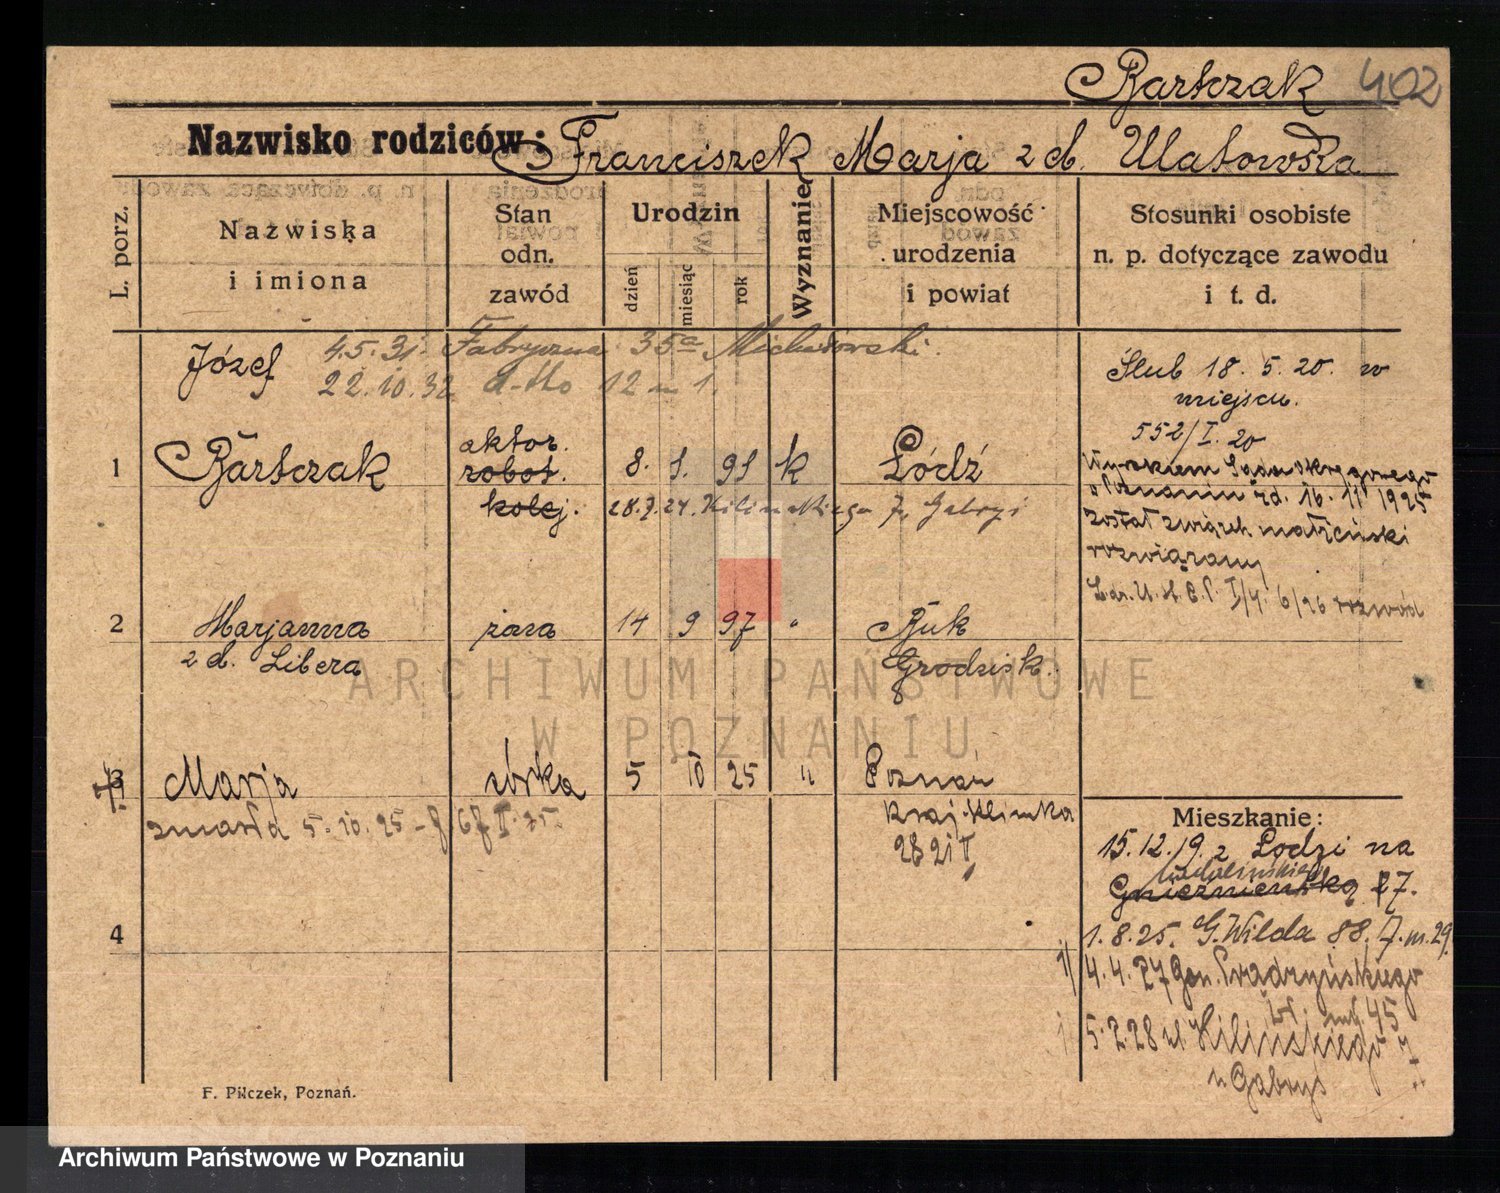 Bartczak 402
Nazwisko rodziców: Franciszek Marja z d. Ulatowska
L. porz.
Nazwiska
i imiona
Stan
odn.
zawód
Urodzin
dzień
miesiąc
rok
Wyznanie
Miejscowość
urodzenia
i powiat
Stosunki osobiste
n. p. dotyczące zawodu
i t. d.
Józef 4.5.31. Fabryczna 35a Michałowski.
22.10.32 12 m 1.
Ślub 18. 5. 20. w
miejscu.
552/I. 20
aktor.
1 Bartczak robot. 8. 1. 91 k Łódź
kolej. 28.7.24. Kilińskiego 7, Gabryś
Wyrokiem Sądu Okręgowego
w Poznaniu zd. 16. 11 1925
został związek małżeński
rozwiązany
U. st. C. P. I/4. 6/26 rozwód
2 Marjanna żona 14 9 97 " Buk
z d. Libera Grodzisk.
ARCHIWUM PAŃSTWOWE
W POZNANIU
3 Marja córka 5 10 25 " Poznań
zmarła 5. 10. 25 - 67 I. 25.
28 21
Mieszkanie:
15.12.19. z Łodzi na
Gnieźnieńską 27.
1. 8. 25. G. Wilda 88. 7. m. 29.
4
4. 4. 27 Gen. Prądzyńskiego
45
5. 2. 28 ul Kilińskiego 7
u Gabryś
F. Pilczek, Poznań.
Archiwum Państwowe w Poznaniu